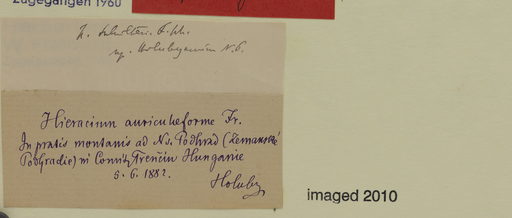 Zugegangen 1960
H. Schulteri F. Sch.
sp. Holubyanum N. P.
Hieracium auriculæforme Fr.
In pratis montanis ad Ns. Podhrad (Zemanské
Podhradie) in Comit. Trenčin Hungariæ
5. 6. 1882.
Holuby
imaged 2010